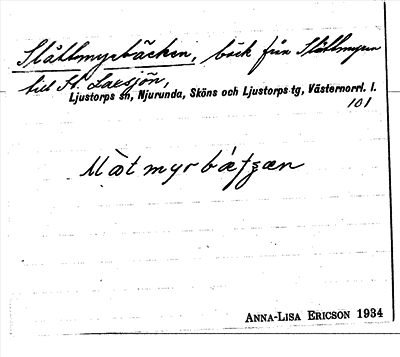 Slåttmyrbäcken, bäck från Slåttmyren
till St. Laxsjön,
Ljustorps sn, Njurunda, Sköns och Ljustorps tg, Västernorrl. l.
101
ANNA-LISA ERICSON 1934